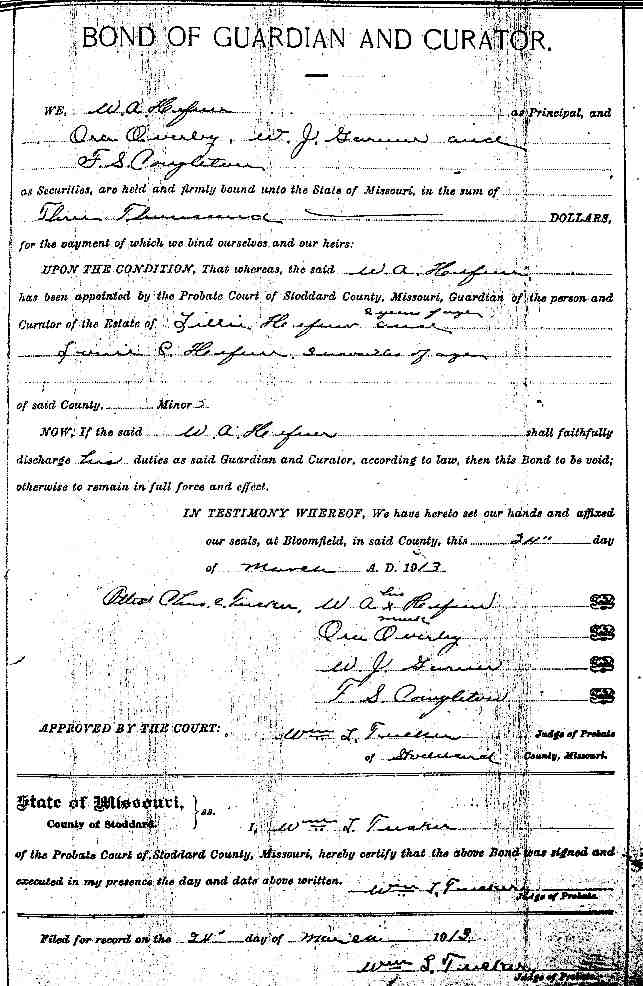 BOND OF GUARDIAN AND CURATOR.
WE, W. A. Hefner as Principal, and
Ora Overby, W. J. Garner and
T. S. Congleton
as Securities, are held and firmly bound unto the State of Missouri, in the sum of
Three Thousand DOLLARS,
for the payment of which we bind ourselves and our heirs:
UPON THE CONDITION, That whereas, the said W. A. Hefner
has been appointed by the Probate Court of Stoddard County, Missouri, Guardian of the person and
years of age
Curator of the Estate of Lillie Hefner and
Hefner months of age
of said County, Minors
NOW, If the said W. A. Hefner shall faithfully
discharge his duties as said Guardian and Curator, according to law, then this Bond to be void;
otherwise to remain in full force and effect.
IN TESTIMONY WHEREOF, We have hereto set our hands and affixed
our seals, at Bloomfield, in said County, this 24" day
of March A. D. 1913.
his
Attest Chas. C. Tucker, W A x Hefner
mark
Ora Overby
W. J. Garner
T. S. Congleton
APPROVED BY THE COURT: Wm L. Tucker Judge of Probate
of Stoddard County, Missouri.
State of Missouri,
County of Stoddard. } ss.
I, Wm L. Tucker
of the Probate Court of Stoddard County, Missouri, hereby certify that the above Bond was signed and
executed in my presence the day and date above written.
Wm L. Tucker
Judge of Probate.
Filed for record on the 24" day of March 1913.
Wm L. Tucker
Judge of Probate.